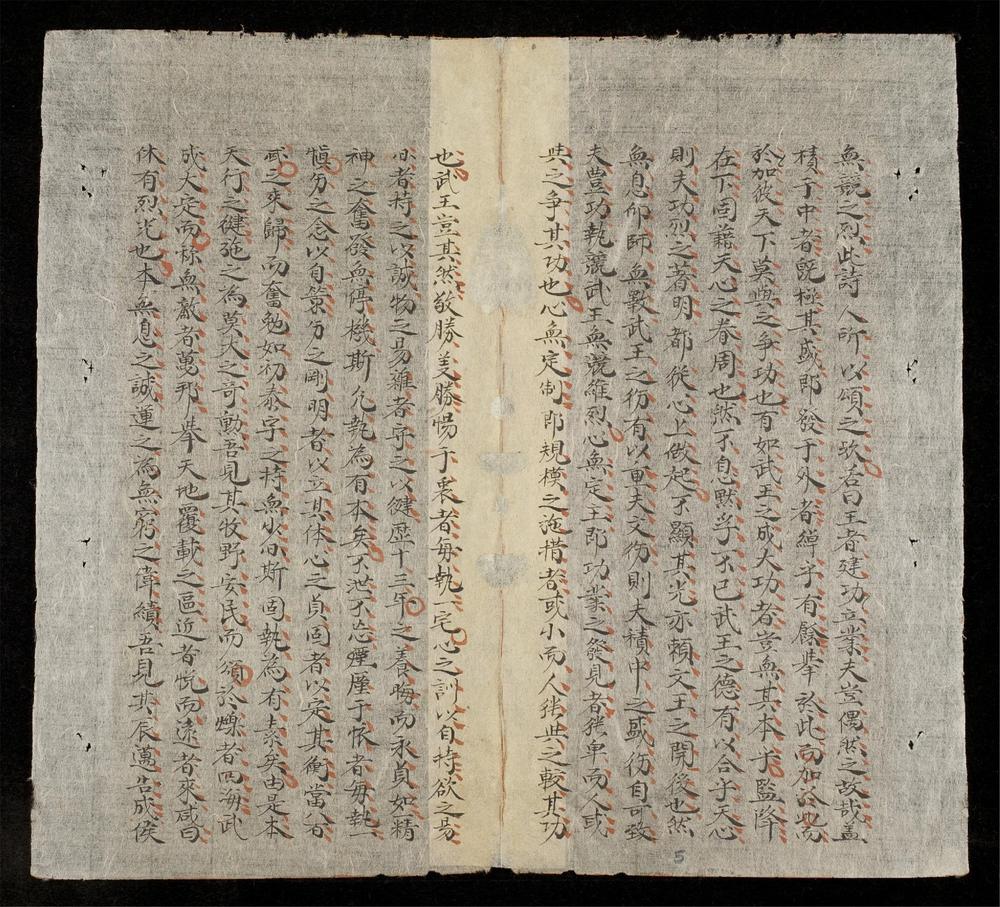 無競之烈此詩人所以頌之歟若曰王者建功立業夫豈偶然之故哉蓋
積于中者既極其盛即發于外者綽乎有餘舉於此而加於彼而
於加彼天下莫與之爭功也有如武王之成大功者豈無其本乎監降
在下固藉天心之眷周也然不息默孚不已武王之德有以合乎天心
則夫功烈之著明都從心上做起丕顯其光亦賴文王之開後也然
無息仰師無斁武王之衍有以重夫文衍則夫積中之盛衍自可致
夫豊功執競武王無競維烈心無定主即功業之發見者猶卑而人或
與之爭其功也心無定制即規模之施措者或小而人猶與之較其功
也武王豈其然敬勝義勝惕于衷者每執一宅心之訓以自持欲之易
者持之以誠物之易雜者守之以健歷十三年之養晦而永貞如精
神之奮發無停機斯允執為有本矣不泄不忘于懷者每執一
分之念以自策分之剛明者以立其体心之貞固者以定其衡當八百
之來歸而奮勉如初泰宇之持無少斯固執為有素矣由是本
天行之健施之為莫大之奇勳吾見其牧野安民而頌於爍者四海武
成大定而称無敵者萬邦舉天地覆載之區近者悅而遠者來咸曰
休有烈光也本無息之誠運之為無窮之偉績吾見其辰邁告成侯
5